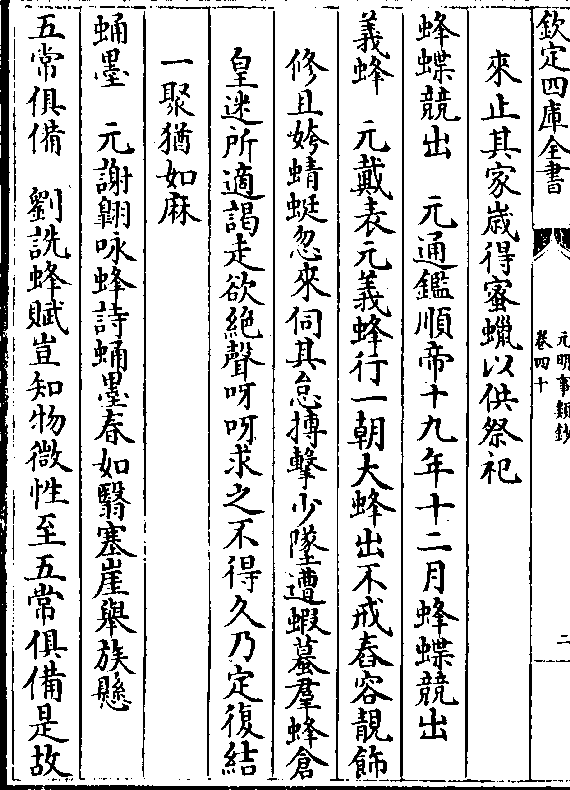 欽定四庫全書
元明事類鈔
卷四十
二
來止其家嵗得蜜蠟以供祭祀
蜂蝶競出　元通鑑順帝十九年十二月蜂蝶競出
義蜂　元戴表元義蜂行一朝大蜂出不戒春容靚飾
修且姱蜻蜓忽來伺其怠摶擊少墜遭蝦蟇羣蜂倉
皇迷所適謁走欲絶聲呀呀求之不得久乃定復結
一聚猶如麻
蛹墨　元謝翺咏蜂詩蛹墨春如翳塞崖舉族懸
五常俱備　劉詵蜂賦豈知物微性至五常俱備是故